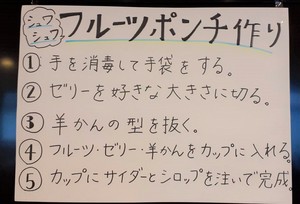 シュワシュワ
フルーツポンチ作り
① 手を消毒して手袋をする。
② ゼリーを好きな大きさに切る。
③ 羊かんの型を抜く。
④ フルーツ・ゼリー・羊かんをカップに入れる。
⑤ カップにサイダーとシロップを注いで完成。